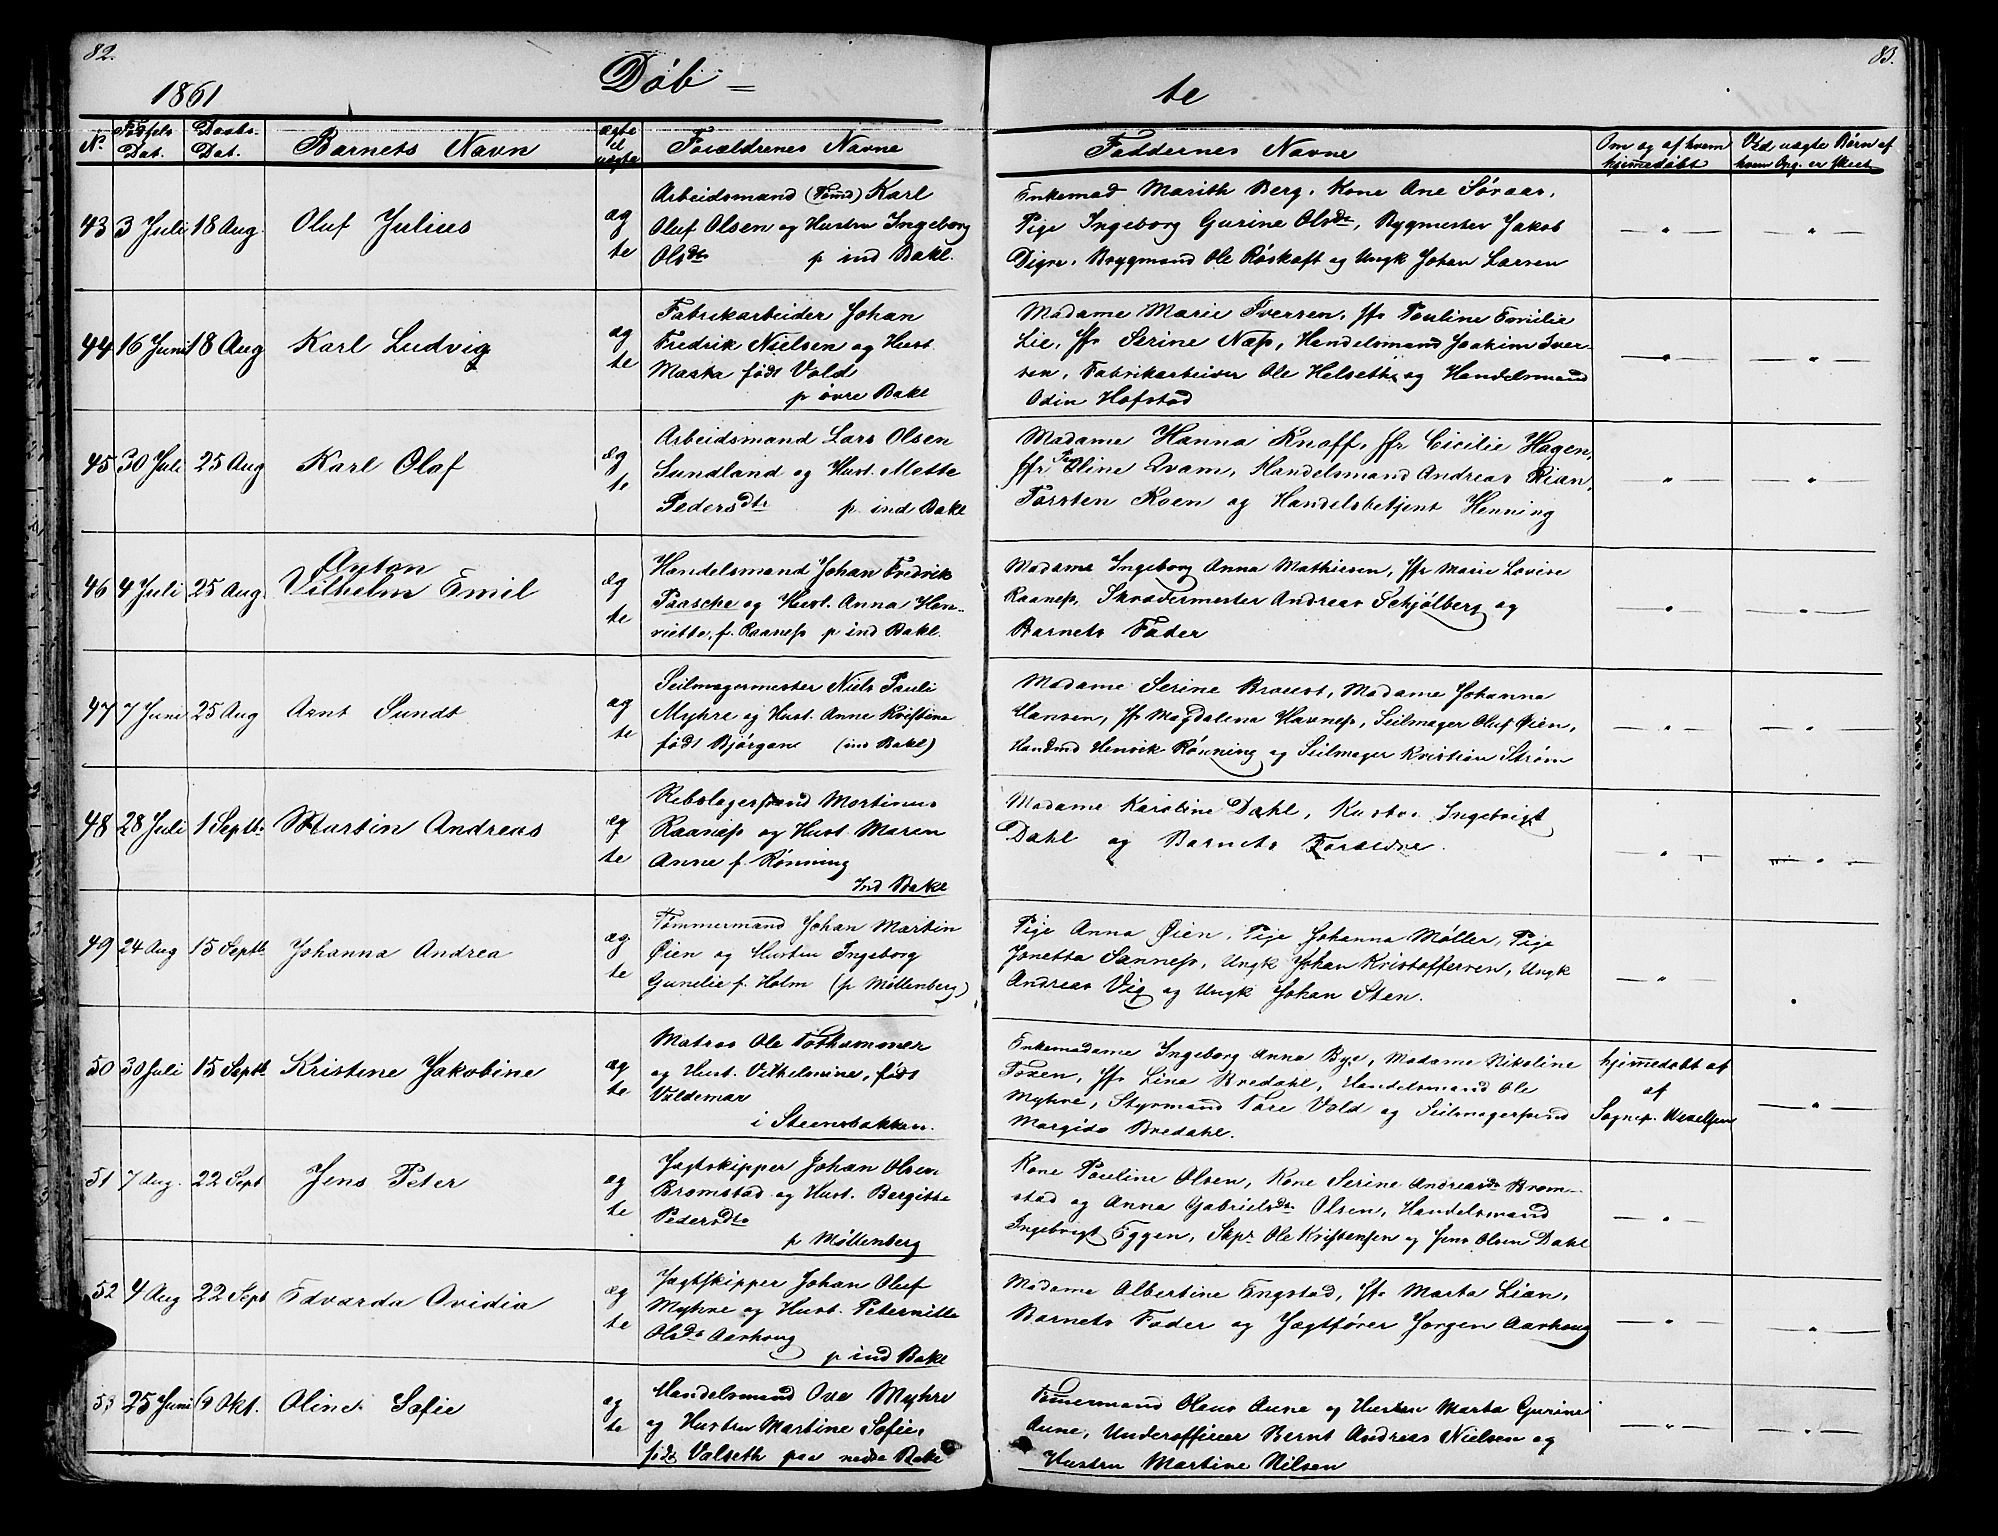 82.
83.
1861
Döb = te
No
Fødsels Dat.
Daabs- Dat.
Barnets Navn
ægte el uægte
Forældrenes Navne
Faddernes Navne
Om og af hvem hjemmedøbt
Ved uægte Børn af hvem Ang. er skeet
43 3 Juli 18 Aug. Oluf Julius
ægte
Arbeidsmand (Tømd) Karl
Oluf Olsen og Hustru Ingeborg
Olsdtr p ind Bakl.
Enkemad Marith Berg, Kone Ane Søraas,
Pige Ingeborg Gurine Olsdtr, Bygmester Jakob
Digre, Brygmand Ole Røskaft og Ungk Johan Larsen
44 16 Juni 18 Aug Karl Ludvig
ægte
Fabrikarbeider Johan
Fredrik Nielsen og Hust.
Marta født Vold
p øvre Bakl
Madame Marie Iversen, Jfr Pauline Emilie
Lie, Jfr Serine Næss, Handelsmand Joakim Iver-
sen, Fabrikarbeider Ole Helseth og Handelsmand
Odin Hofstad
45 30 Juli 25 Aug Karl Olaf
ægte
Arbeidsmand Lars Olsen
Sundland og Hust. Mette
Pedersdtr p. ind Bakl
Madame Hanna Knoff, Jfr Cicilie Hagen,
Jfr Oline Qvam, Handelsmand Andreas Rian,
Torsten Roen og Handelsbetjent Henning
46 4 Juli 25 Aug. Anton
Vilhelm Emil
ægte
Handelsmand Johan Fredrik
Paasche og Hust. Anna Hen-
riette, f. Raaness p ind Bakl.
Madame Ingeborg Anna Mathiesen, Jfr Marie Lovise
Raaness, Skrædermester Andreas Schjølberg og
Barnets Fader
47 7 Juni 25 Aug Arnt Sundt
ægte
Seilmagermester Niels Pauli
Myhre og Hust. Anne Kristine
født Bjørgan (ind Bakl)
Madame Serine Broust, Madame Johanna
Hansen, Jfr Magdalena Havness, Seilmager Oluf Øien,
Handmd Henrik Rønning og Seilmager Kristian Strøm
48 28 Juli 1 Septb. Martin Andreas
ægte
Rebslagersvend Martinus
Raaness og Hust. Maren
Anne f. Rønning
Ind Bakl
Madame Karoline Dahl, Ingebrigt
Dahl og Barnets Forældre.
49 24 Aug 15 Septb Johanna Andrea
ægte
Tømmermand Johan Martin
Øien og Hustru Ingeborg
Gunelie f. Holm (p Møllenberg)
Pige Anna Øien, Pige Johanna Møller, Pige
Jonetta Sanness, Ungk Johan Kristoffersen, Ungk
Andreas Vig og Ungk Johan Sten.
50 30 Juli 15 Septb Kristine Jakobine
ægte
Matros Ole Tothammer
og Hust. Vilhelmine, født
Valdemar
i Steensbakken.
Enkemadame Ingeborg Anna Bye, Madame Nikoline
Foxen, Jfr Lina Bredahl, Handelsmand Ole
Myhre, Styrmand Tore Vold og Seilmagersvend
Margido Bredahl.
hjemmedøbt af
af
Sognep. Wexelsen
51 7 Aug. 22 Sept Jens Peter
ægte
Jagtskipper Johan Olsen
Bromstad og Hust. Bergitte
Pedersdtr
p Møllenberg
Kone Pauline Olsen, Kone Serine Andreasdtr Brom-
stad og Anna Gabrielsdtr Olsen, Handelsmand
Ingebrigt Eggen, Skpr Ole Kristensen og Jens Olsen Dahl
52 4 Aug 22 Sept Edvarda Ovidia
ægte
Jagtskipper Johan Oluf
Myhre og Hust. Peternille
Olsdtr Aarhoug
p ind Bakl
Madame Albertine Engstad, Jfr Marta Lian,
Barnets Fader og Jagtfører Jørgen Aarhoug
53 25 Juni 6 Okt. Oline Sofie
ægte
Handelsmand Ove Myhre
og Hustru Martine Sofie,
født Valseth paa nedre Bakl
Tømmermand Olaus Aune og Hustru Marta Gurine
Aune, Underofficier Bernt Andreas Nielsen og
Hustru Martine Nilsen